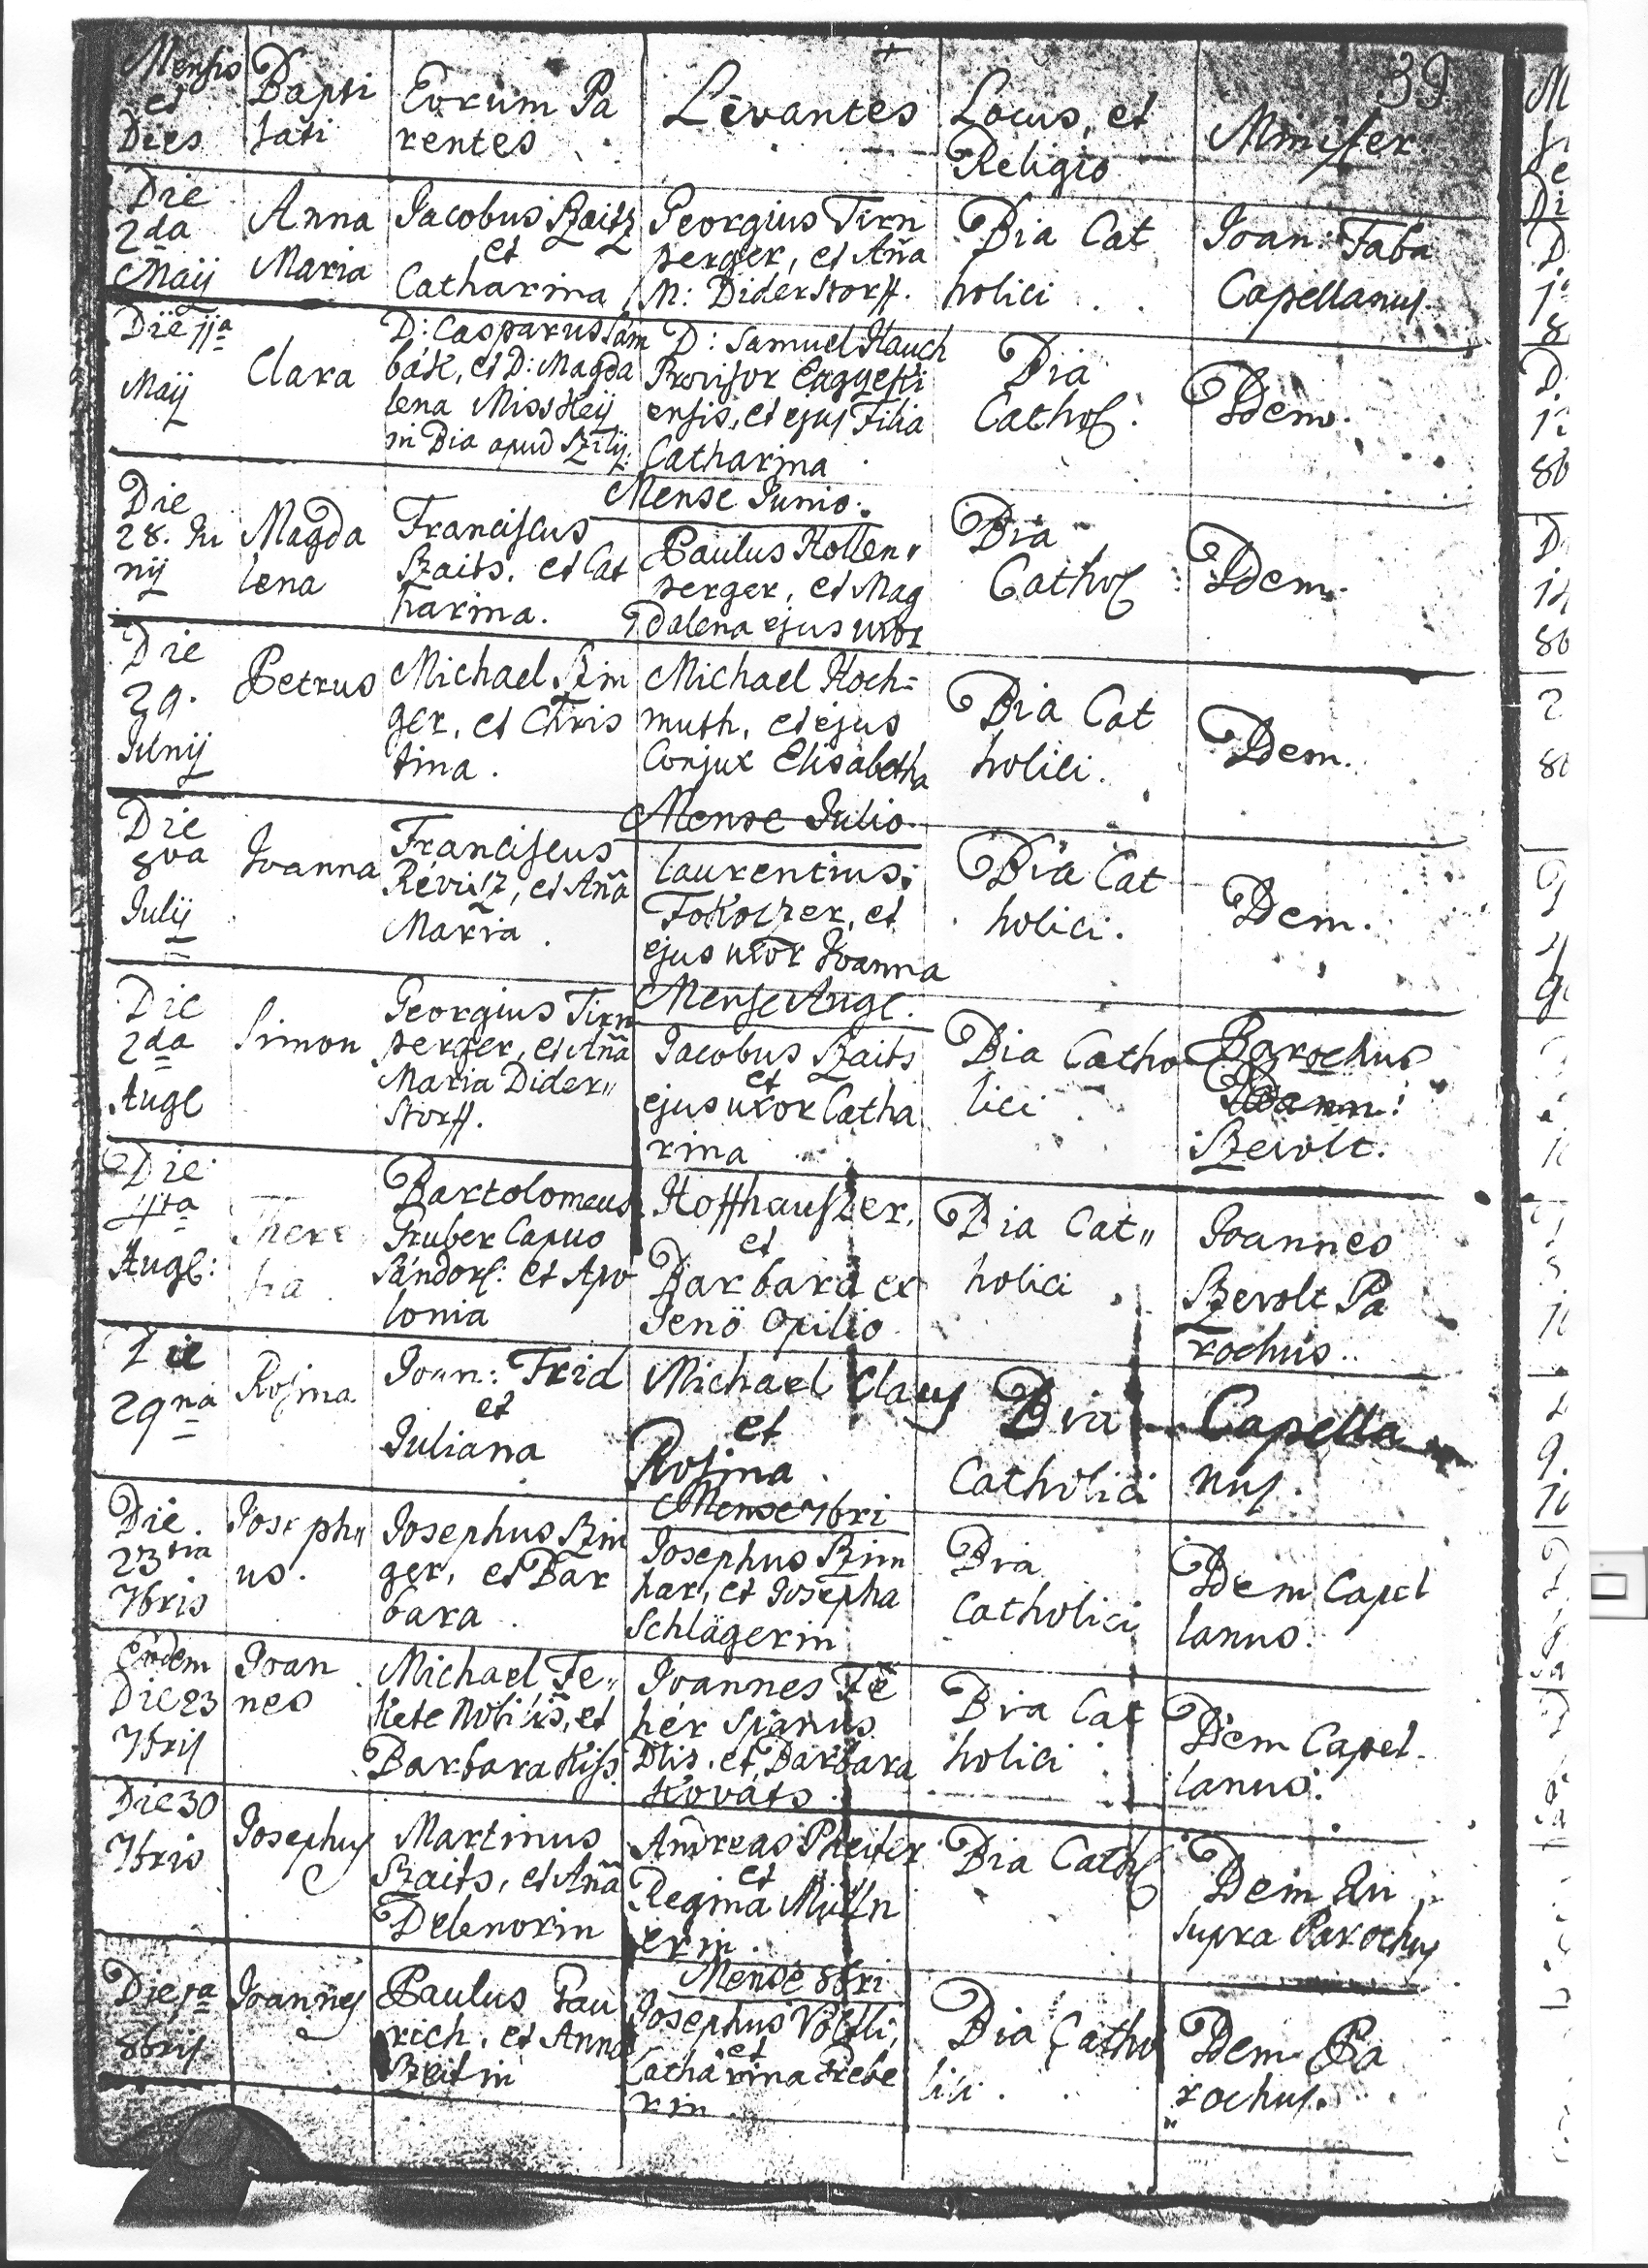 39
Mensis et Dies
Bapti
sati
Eorum Pa
rentes
Levantes
Locus, et
Religio
Minister
Die
2da
Maij
Anna
Maria
Jacobus Szaitz
et
Catharina
Georgius Tirn
perger, et Aña
M: Diderstorff.
Bia Cat
holici
Joan: Faba
Capellanus.
Die 11a
Maij
Clara
D: Casparus Sam
bák, et D: Magda
lena Misskeij
in Bia apud Szily.
D: Samuel Hauch
Provisor
ensis, et ejus Filia
Catharina
Bia
Cathol:
Idem.
Mense Junio.
Die
28. Ju
nij
Magda
lena
Franciscus
Szaits, et Cat
harina.
Paulus Hollen
perger, et Mag
dalena ejus uxor
Bia
Cathol
Idem.
Die
29.
Junij
Petrus
Michael Szin
ger, et Chris
tina.
Michael Hoch=
muth, et ejus
Conjux Elisabetha
Bia Cat
holici.
Idem.
Mense Julio.
Die
8va
Julij
Joanna
Franciscus
Révisz, et Aña
Maria.
Laurentius
Tokolyzer, et
ejus uxor Joanna
Bia Cat
holici.
Idem.
Mense Augl.
Die
2da
Augl
Simon
Georgius Tirn
perger, et Aña
Maria Dider„
storff.
Jacobus Szaits
et
ejus uxor Catha
rina
Bia Catho
lici
Parochus
Joann:
Szevolt.
Die
4ta
Augl:
There
sia
Bartolomeus
Gruber Capuo
Sándorf: et Apo
lonia
Hoffhauszer,
et
Barbara ex
Jenö Opilio
Bia Cat„
holici
Joannes
Szevolt Pa
rochus.
Die
29na
Rosina
Joan: Frid
et
Juliana
Michael Claus
et
Rosina
Bia
Catholici
Capella
nus.
Mense 7bri
Die
23tia
7bris
Joseph„
us.
Josephus Szin
ger, et Bar
bara.
Josephus Szim
har, et Josepha
Schlägerin
Bia
Catholici
Idem Capel
lanus.
Eodem
Die 23
7bris
Joan
nes
Michael Fe„
kete Nobilis, et
Barbara Kiss.
Joannes Fe
hér Spanus
Dlis. et Barbara
Kováts.
Bia Cat
holici
Idem Capel
lanus.
Die 30
7bris
Josephus
Martinus
Szaits, et Aña
Delenorin
Andreas Pheifer
et
Regina Mülln
erin.
Bia Cathol
Idem Qu
supra Parochus
Mense 8bri
Die 1a
8bris
Joannes
Paulus Pau
rich, et Anna
Szeitin
Josephus Völfli,
et
Catharina Trebe
rin
Bia Catho
lici.
Idem Pa
rochus.